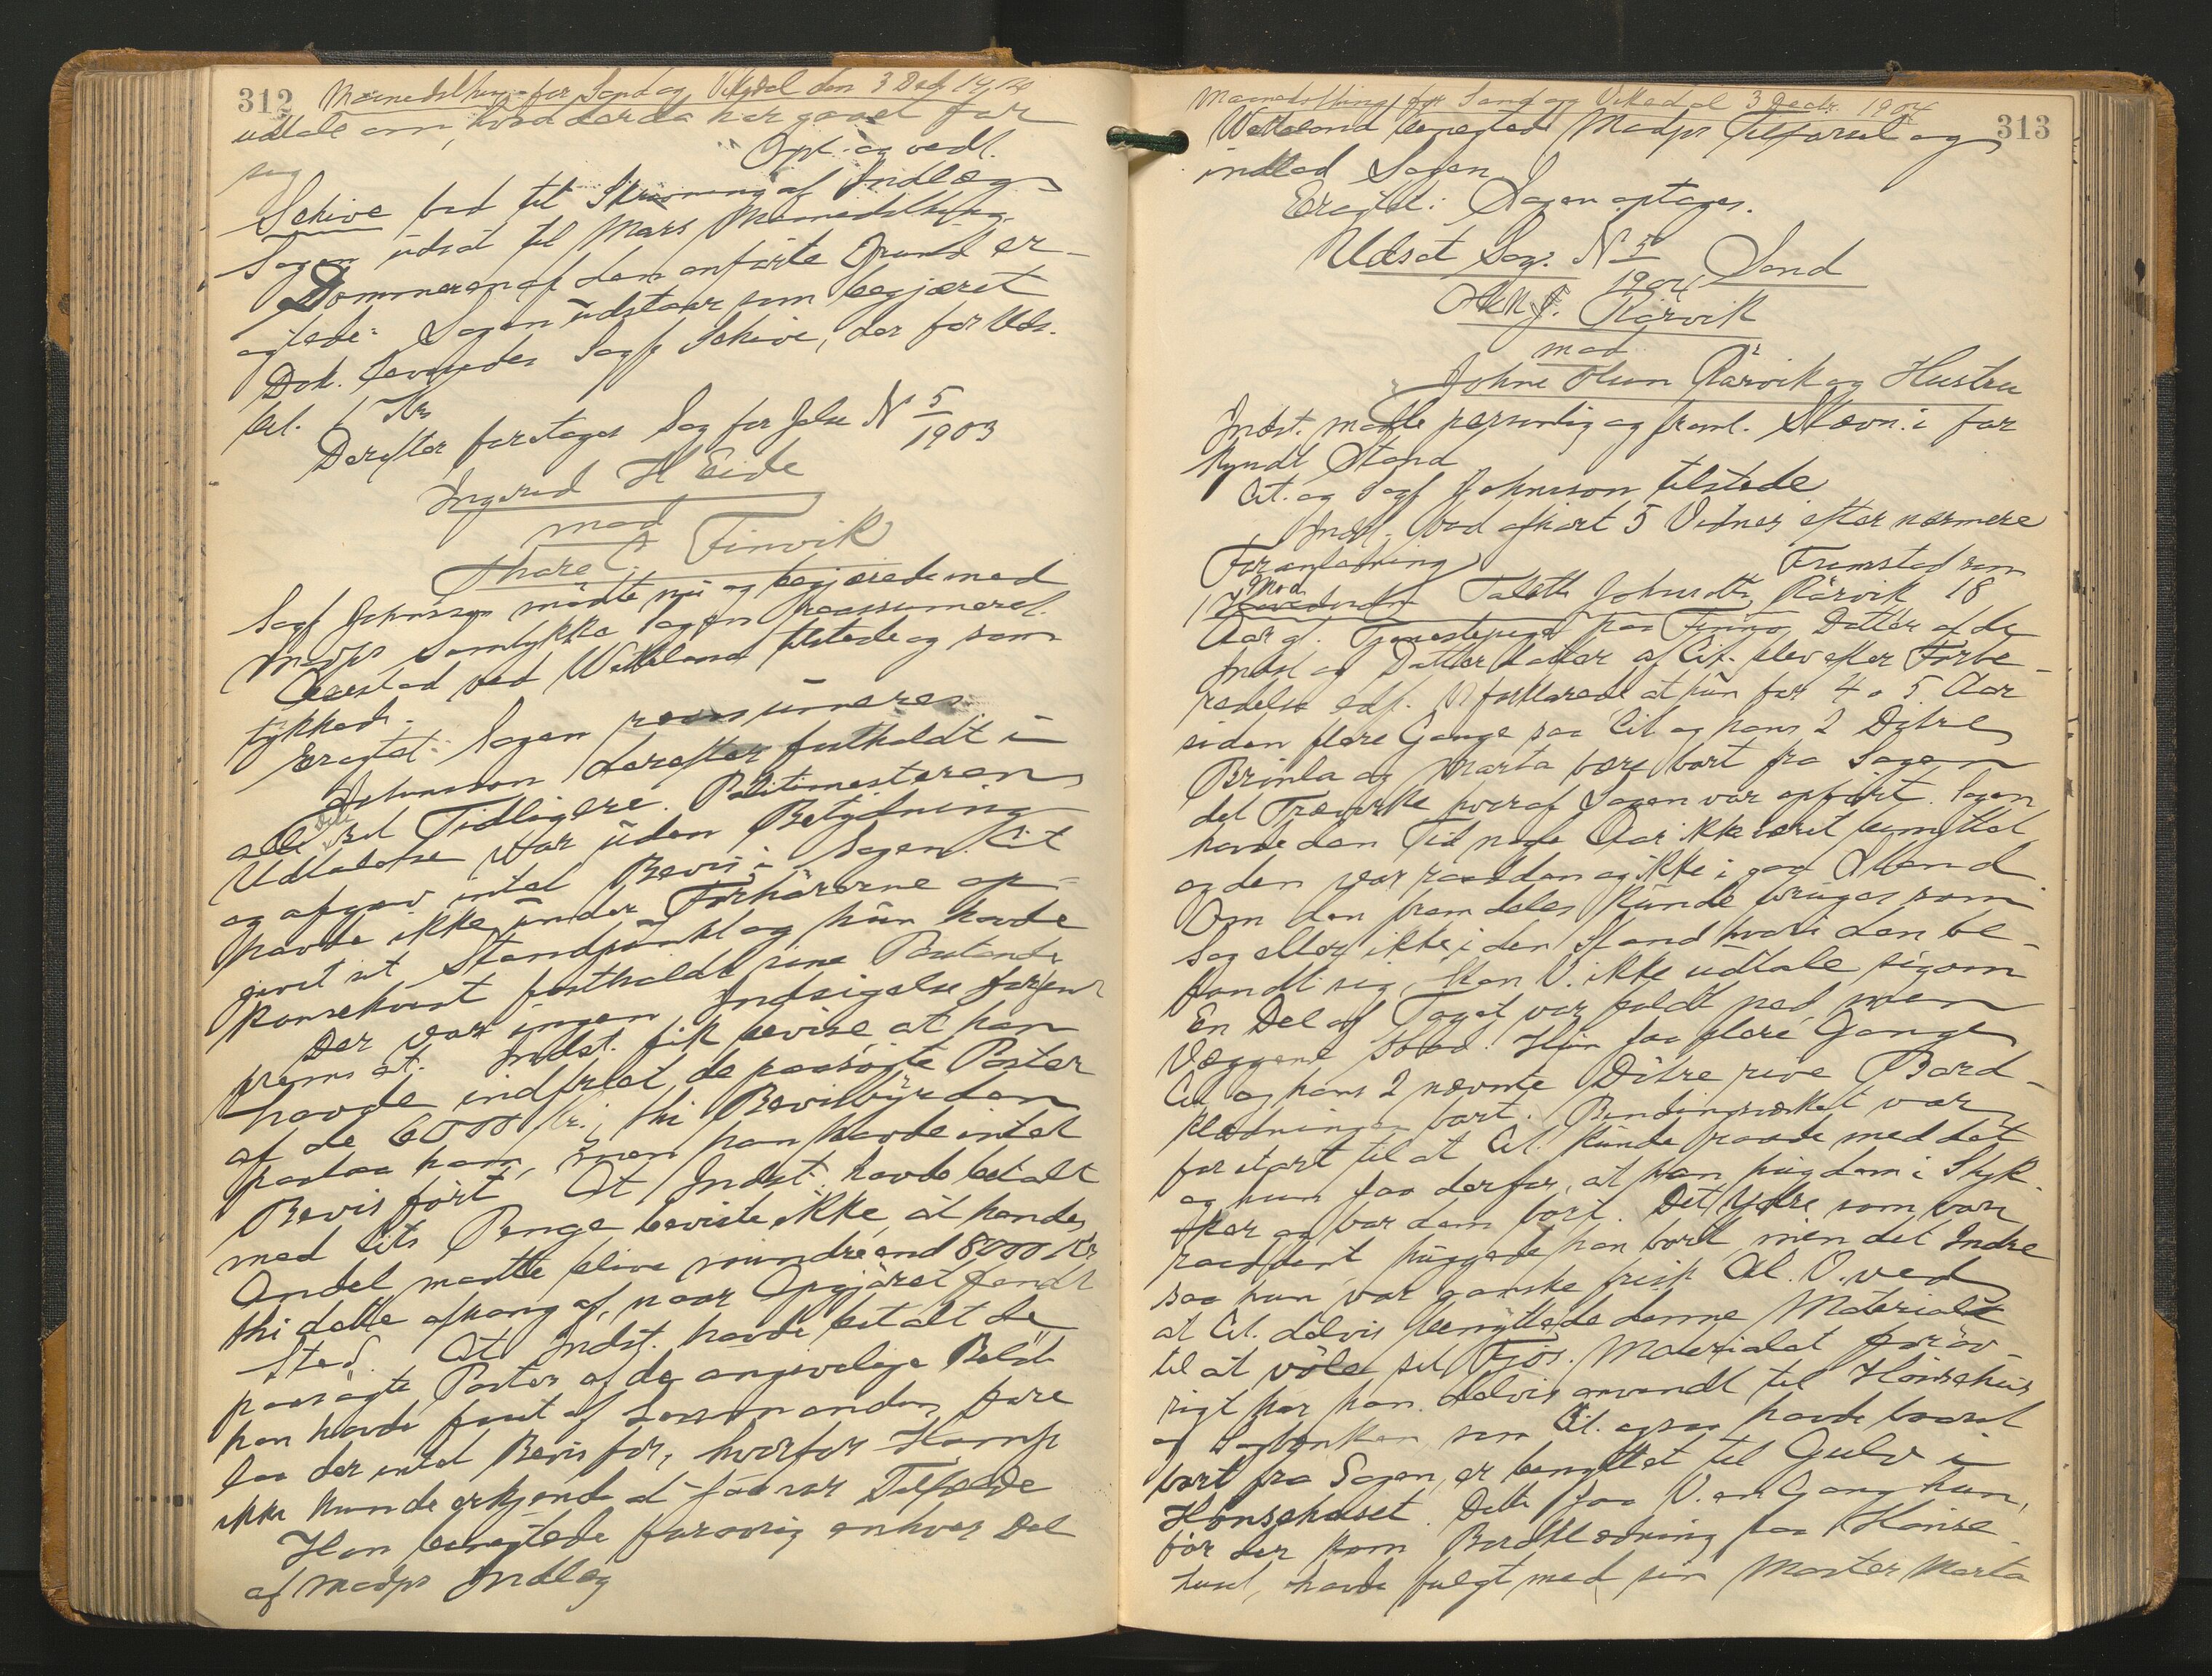 312 Maanedsthing for Sand og Vikedal den 3 Dec 1904
udtale om, hvad der da har gaaet for
sig
Opl. og vedt.
Schive bad til Skrivning af Indlæg
Sagen udsat til Mars Maanedsthing.
Dommeren af den anførte Grund er-
agtede: Sagen udstaar som begjæret
Dok. leveredes Sagf Schive, der for Uds.
bet. 1 Kr
Derefter foretages Sag for Jelse N 5/1903
Ingerid H Eide
mod
Thore Finvik
Sagf Johnsson mødte nu og begjærede med
Madps Samtykke Sagen reassumeret.
Aarestad ved Wetteland tilstede og sam
tykkede.
Eragtet: Sagen reassumeres
Johnsson derefter fastholdt i
alle Dele sit Tidligere. Politimesterens
Udtalelse var uden Betydning
og afgav intet Bevis i Sagen. Cit
havde ikke under Forhørerne op-
givet sit Standpunkt og hun havde
konsekvent fastholdt sine Paastande
Der var ingen Indsigelse
fremsat. Indst. fik bevise, at han
havde indfriet de paasøgte Poster
af de 6000 Kr.; thi Bevisbyrden
paalaa ham, men han havde intet
Bevis ført. At Indst. havde betalt
med Cits Penge beviste ikke, at hendes
Andel maatte blive mindre end 8000 Kr,
thi dette afhang af, naar Opgjøret fandt
Sted. At Indst. havde betalt de
paasøgte Poster af de angivelige Beløb
han havde faaet af Lensmanden, fore
laa der intet Bevis for, hvorfor Komp
ikke kunde erkjende at saa var Tilfælde
Han benegtede forøvrig enhver Del
af Madps Indlæg
Maanedsthing for Sand og Vikedal 3 Decbr. 1904 313
Wetteland benegted Madps Tilførsel og
indlod Sagen.
Eragtet: Sagen optages.
Udsat Sag. N 5/1904 Sand
Rørvik
mod
Johne Olsen Rørvik og Hustru
Indst. mødte personlig og freml. Stævn. i for
kyndt Stand
Cit. og Sagf Johnsson tilstede
Indst. bad afhørt 5 Vidner efter nærmere
Foranledning
Fremstod som
1 Mod Taletta Johnsdtr Rørvik 18
Aar gl. Tjenestepige paa Datter af de
Indst og Datter Datter af Cit. blev efter Forbe-
redelse edf. V forklarede, at hun for 4 a 5 Aar
siden flere Gange saa Cit og hans 2 Døtre
Brinla og Marta bære bort fra Sagen
det Træværke hvoraf Sagen var opført. Sagen
havde den Tid nogle Aar ikke været benyttet
og den var raadden og ikke i god Stand.
Om den fremdeles kunde bruges som
Sag eller ikke i den Stand hvori den be-
fandt sig, kan V. ikke udtale sig om
En Del af Taget var faldt ned, men
Væggene stod. Hun saa flere Gange
Cit og hans 2 nævnte Døtre rive Bord-
klædningen bort. Bindingsværket var
for stort til at Cit. kunde raade med det
og hun saa derfor, at han hug dem i Styk-
ker og bar dem bort. Det Ydre som var
raaddent huggede han bort, men det Indre
saa hun var ganske frisk Al. V. ved
at Cit. delvis benyttede denne Materiale
til at vøle sit Fjøs. Materialet forøv-
rigt har han delvis anvendt til Hønsehus
og Sagbænken som Cit. ogsaa havde baaret
bort fra Sagen, er benyttet til Gulv i
Hønsehuset. Dette saa V. en Gang hun,
før der kom Bordklædning paa Hønse
huset, havde fulgt med sin Moster Marta